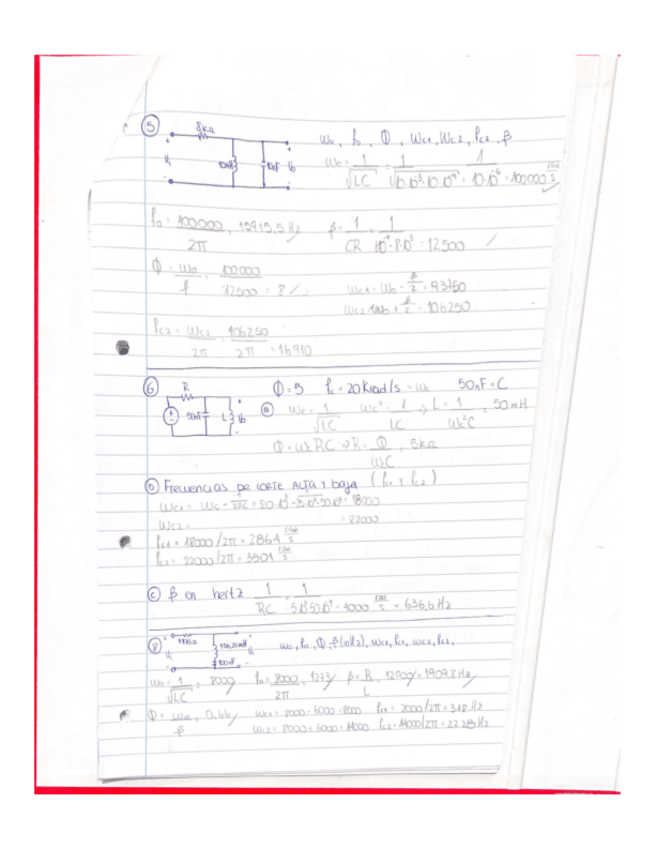 5
8kΩ
ω₀, f₀, Q, ωc1, ωc2, fc2, β
Vi 10mH 10nF Vo
ω₀ = 1/√LC = 1/√10·10⁻³·10·10⁻⁹ = 1/10·10⁻⁶ = 100,000 rad/s
f₀ = 100000/2π = 15915,5 Hz β = 1/CR = 1/10⁻⁸·8·10³ = 12500
Q = ω₀/β = 100000/12500 = 8 ωc1 = ω₀ - β/2 = 93750
ωc2 = ω₀ + β/2 = 106250
fc2 = ωc2/2π = 106250/2π = 16910
6
R 50nF L Vo
Q = 5 fc = 20 Krad/s = ωc 50nF = C
a) ωc = 1/√LC ωc² = 1/LC → L = 1/ωc²C = 50mH
Q = ωc RC → R = Q/ωcC = 5kΩ
b) Frecuencias de corte Alta y baja (fc1 y fc2)
ωc1 = ωc - = 18000
ωc2 = = 22000
fc1 = 18000/2π = 2864 rad/s
fc2 = 22000/2π = 3501 rad/s
c) β en hertz 1/RC = 1/5·10³·50·10⁻⁹ = 4000 rad/s = 636,6 Hz
8
Vi 156,25mH 100nF Vo
ω₀, f₀, Q, β(inHz), ωc1, fc1, ωc2, fc2,
ω₀ = 1/√LC = 8000 f₀ = 8000/2π = 1273 β = R/L = 12000 = 1909.8Hz
Q = ω₀/β = 0,66 ωc1 = 8000 - 6000 = 2000 fc1 = 2000/2π = 318 Hz
ωc2 = 8000 + 6000 = 14000 fc2 = 14000/2π = 2228 Hz